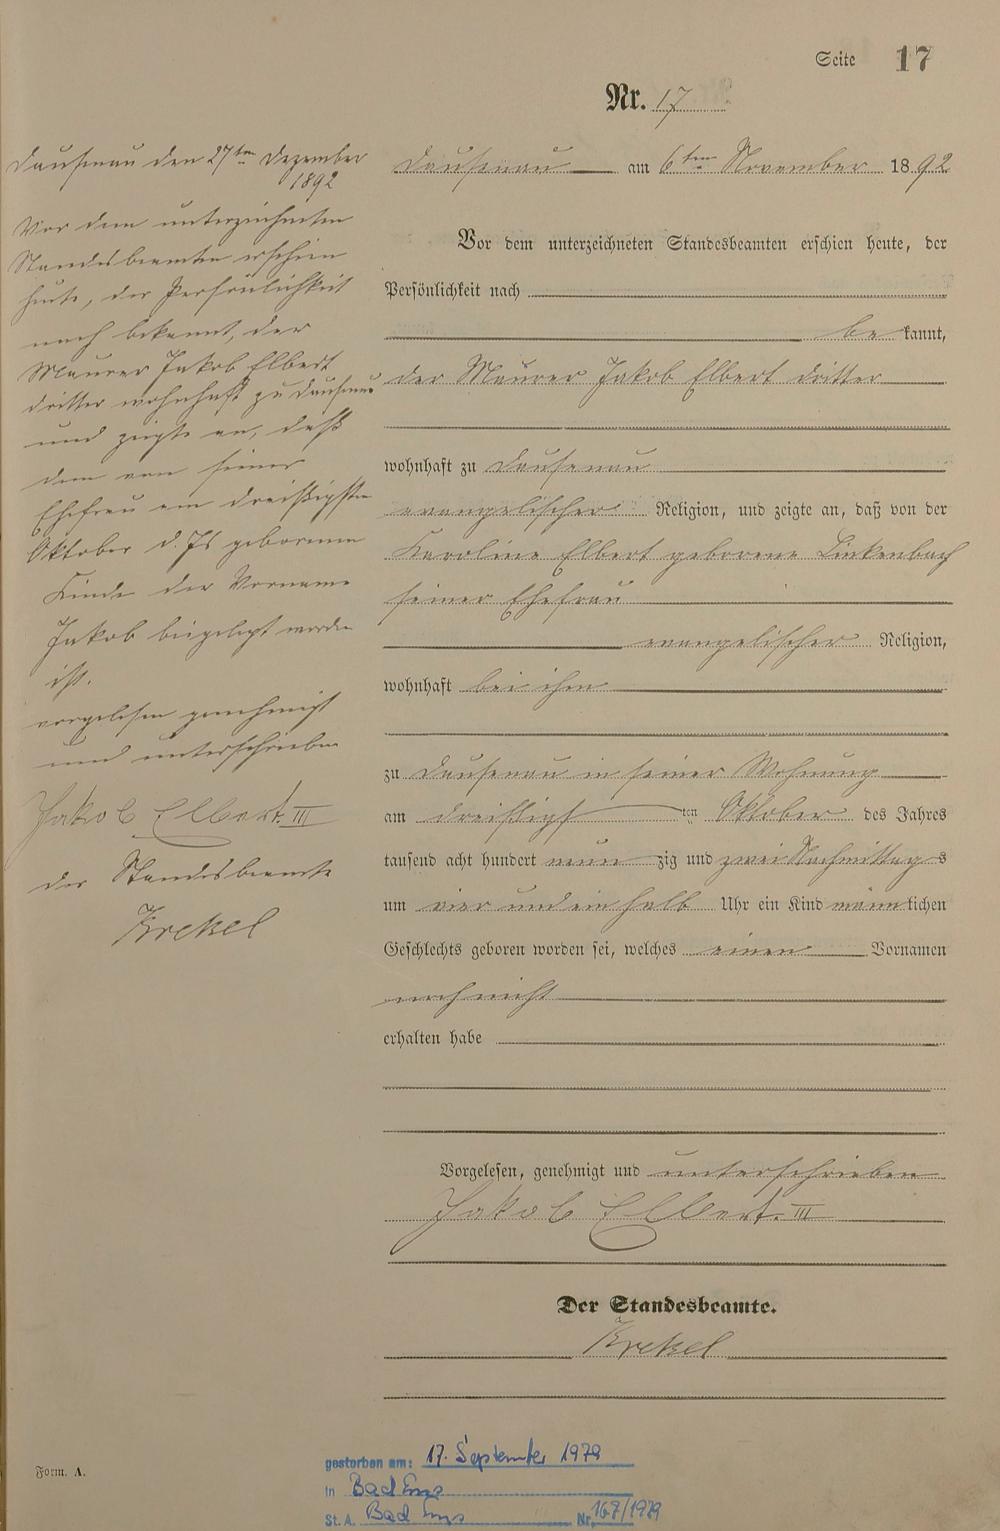 Seite 17
Nr. 17
Dausenau den 27ten Dezember
1892
Vor dem unterzeichneten
Standesbeamten erschien
heute, der Persönlichkeit
nach bekannt, der
Maurer Jakob Elbert
dritter wohnhaft zu Dausenau
und zeigte an, daß
dem von seiner
Ehefrau am dreißigsten
Oktober d. Js geborenen
Kinde der Vorname
Jakob beigelegt worden
ist.
vorgelesen genehmigt
und unterschrieben
Jakob Elbert. III
der Standesbeamte
Krekel
Dausenau am 6ten November 1892
Vor dem unterzeichneten Standesbeamten erschien heute, der
Persönlichkeit nach
be kannt,
der Maurer Jakob Elbert dritter
wohnhaft zu Dausenau
evangelischer Religion, und zeigte an, daß von der
Karoline Elbert geborene Linkenbach
seiner Ehefrau
evangelischer Religion,
wohnhaft bei ihm
zu Dausenau in seiner Wohnung
am dreißigst ten Oktober des Jahres
tausend acht hundert neun zig und zwei Nachmittags
um vier und ein halb Uhr ein Kind männlichen
Geschlechts geboren worden sei, welches einen Vornamen
noch nicht
erhalten habe
Vorgelesen, genehmigt und unterschrieben
Jakob Elbert. III
Der Standesbeamte.
Krekel
Form. A.
gestorben am: 17. September 1979
in Bad Ems
St. A. Bad Ems Nr. 167/1979